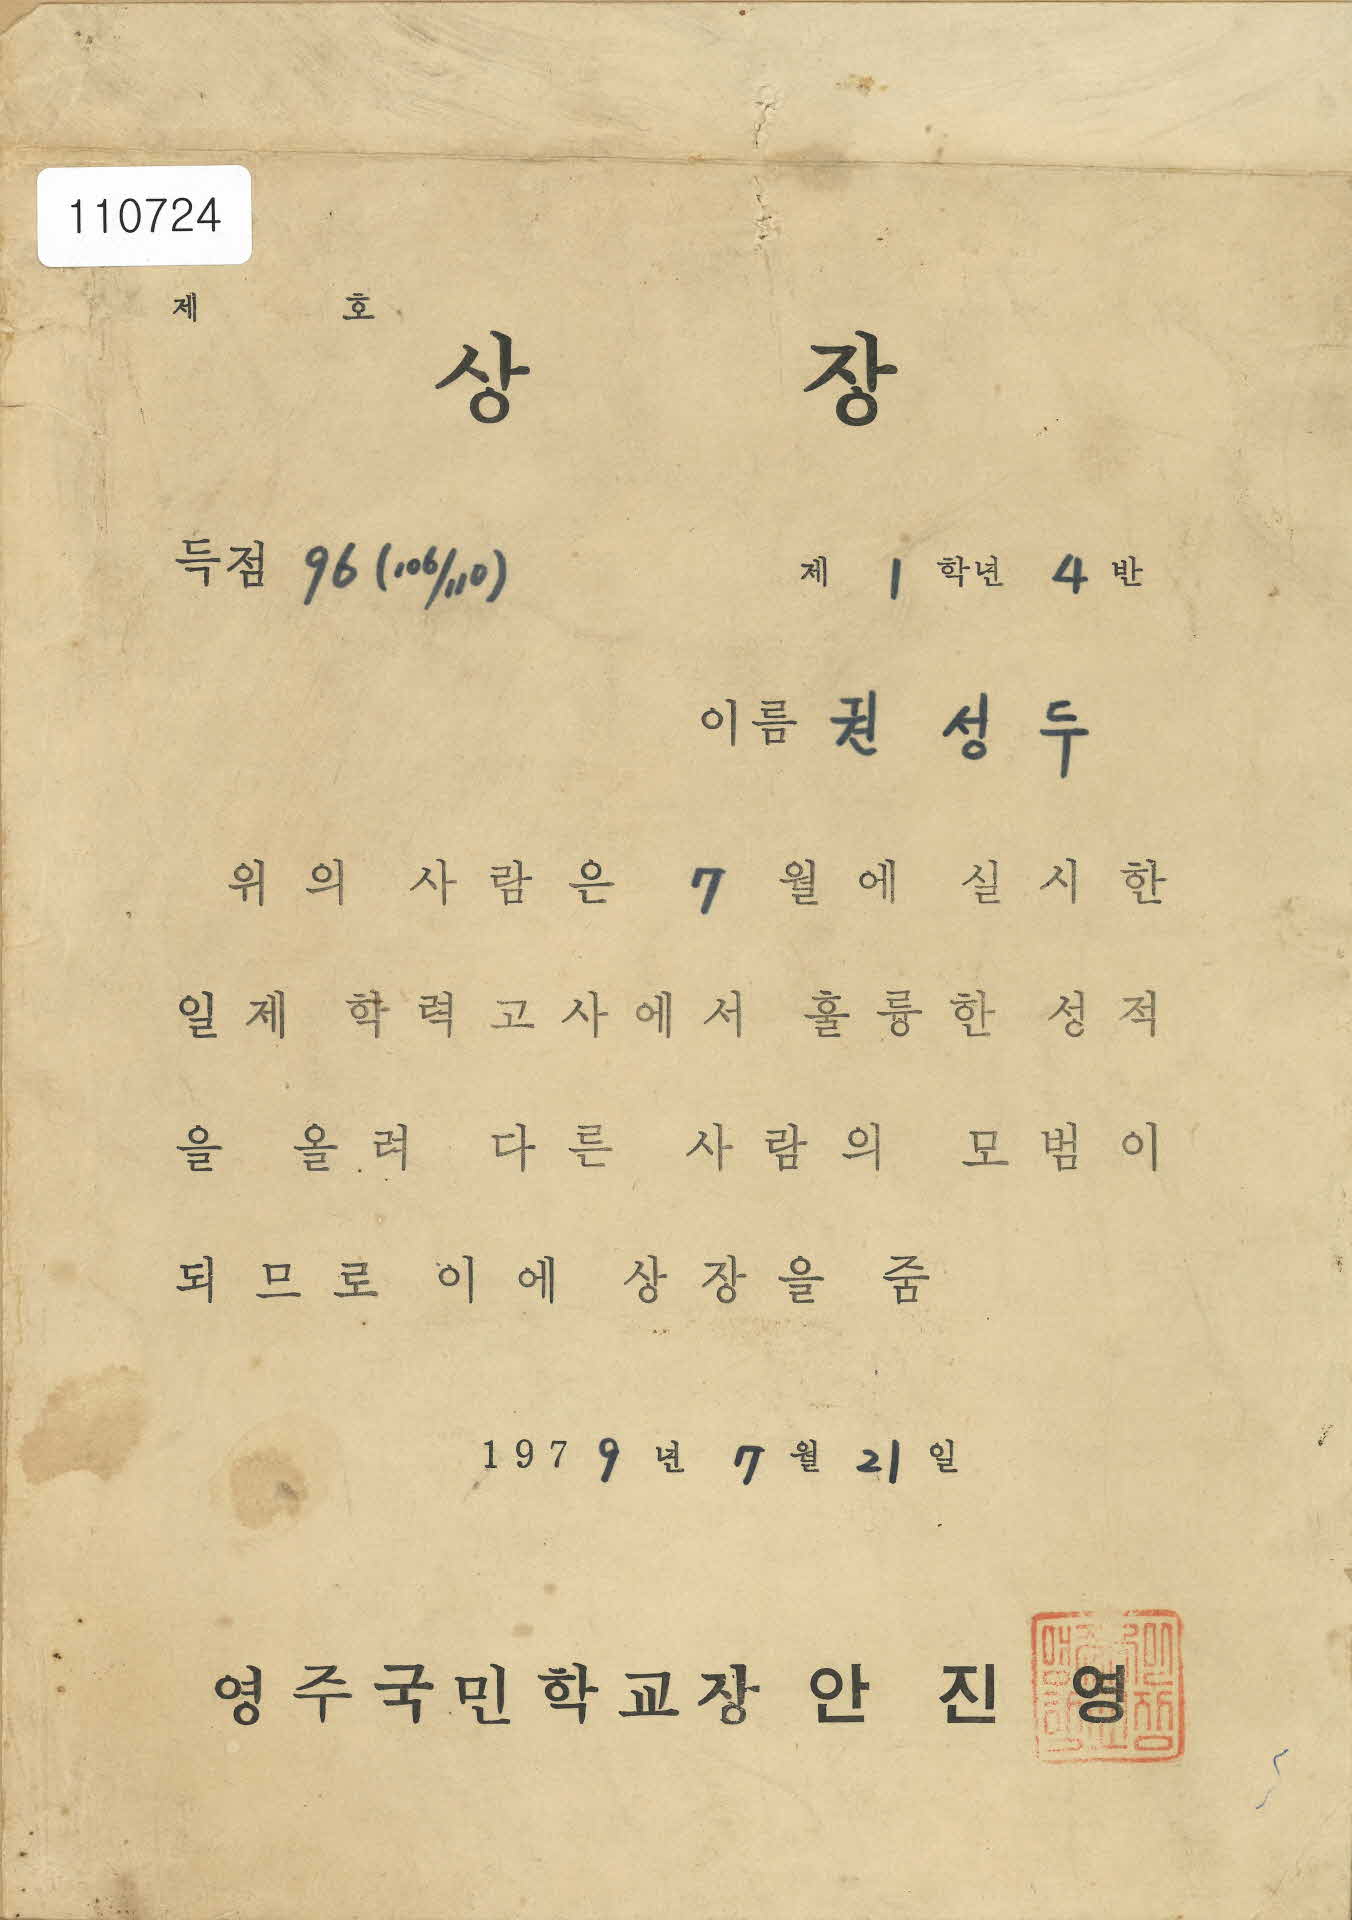 110724
제 호
상 장
득점 96 (106/110) 제 1 학년 4 반
이름 권 성 두
위의 사람은 7 월에 실시한
일제 학력고사에서 훌륭한 성적
을 올려 다른 사람의 모범이
되므로 이에 상장을 줌
1979 년 7 월 21 일
영주국민학교장 안 진 영